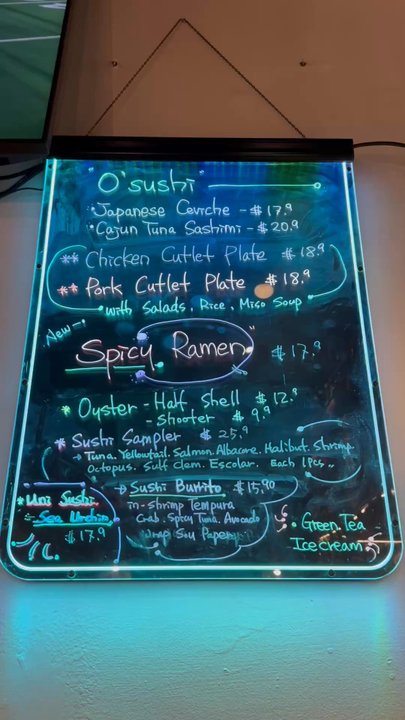 "O'sushi"
*Japanese Ceviche - $17.9
*Cajun Tuna Sashimi - $20.9
** Chicken Cutlet Plate $18.9
** Pork Cutlet Plate $18.9
with Salads, Rice, Miso Soup
New
Spicy Ramen" $17.9
* Oyster - Half Shell $12.9
- shooter $9.9
* Sushi Sampler $25.9
Tuna. Yellowtail. Salmon. Albacore. Halibut. Shrimp
Octopus. Sulf Clam. Escolar. Each 1pcs..
Sushi Burrito $15.90
in - Shrimp Tempura
Crab. Spicy Tuna. Avocado
Wrap Soy Paper
* Uni Sushi
- Sea Urchin
$17.9
• Green Tea
Ice cream